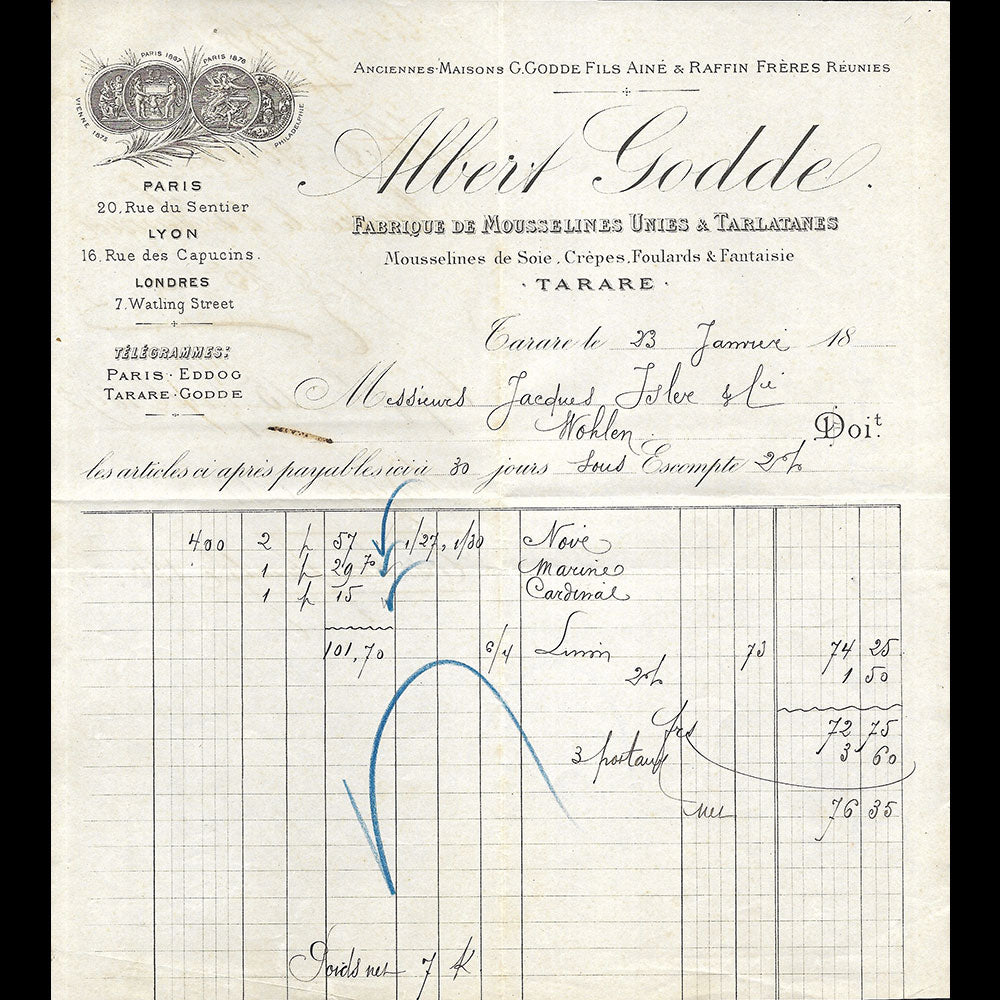 PARIS 1867 PARIS 1878
VIENNE 1873 PHILADELPHIE
ANCIENNES MAISONS G. GODDE FILS AINÉ & RAFFIN FRÈRES RÉUNIES
Albert Godde.
FABRIQUE DE MOUSSELINES UNIES & TARLATANES
Mousselines de Soie, Crêpes, Foulards & Fantaisie
· TARARE ·
PARIS
20, Rue du Sentier
LYON
16, Rue des Capucins.
LONDRES
7, Watling Street
TÉLÉGRAMMES:
PARIS · EDDOG
TARARE · GODDE
Tarare le 23 Janvier 18
Messieurs Jacques Isler & Cie
Wohlen Doit.
les articles ci après payables ici à 30 jours sous Escompte 2%
400 2 p 57 1/27, 1/30
1 p 29 70 Marine
1 p 15 Cardinal
101,70 6/4 73 74 25
2% 1 50
frs 72 75
3 3 60
net 76 35
Poids net 7 K